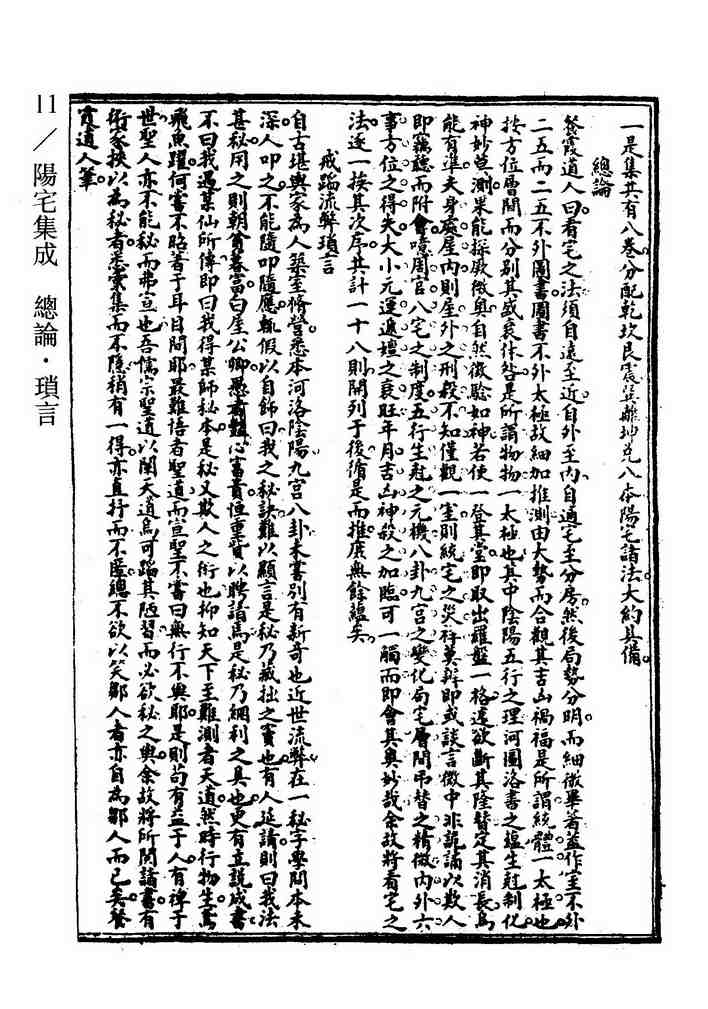 一是集共有八卷分配乾坎艮震巽離坤兌八本陽宅諸法大約具備
總論
餐霞道人曰看宅之法須自遠至近自外至內自通宅至分房然後局勢分明而細微畢著蓋作室不外
二五而二五不外圖書圖書不外太極故細加推測由大勢而合觀其吉凶禍福是所謂統體一太極也
按方位層間而分別其盛衰休咎是所謂物物一太極也其中陰陽五行之理河圖洛書之蘊生尅制化
神妙莫測果能探厥微奧自然徵驗如神若使一登其堂即取出羅盤一格遠欲斷其隆替定其消長烏
能有準夫身處屋內則屋外之刑殺不知僅觀一室則統宅之災祥莫辨即或談言微中非詭譎以欺人
即竊聽而附會噫周官八宅之制度五行生尅之元機八卦九宮之變化局宅層間吊替之精微內外六
事方位之得失大小元運遞嬗之衰旺年月吉凶神殺之加臨可一觸而即會其奧妙哉余故將看宅之
法逐一挨其次序共計一十八則開列于後循是而推庶無餘蘊矣
戒蹈流弊瑣言
自古堪輿家為人築室脩營悉本河洛陰陽九宮八卦未嘗別有新奇也近世流弊在一秘字學問本未
深人叩之不能隨叩隨應輒假以自飾曰我之秘訣難以顯言是秘乃藏拙之竇也有人延請則曰我法
甚秘用之則朝貧暮富白屋公卿愚者豔心富貴恒重貲以聘請焉是秘乃網利之具也更有立說成書
不曰我遇某仙所傳即曰我得某師秘本是秘又欺人之術也抑知天下至難測者天道然時行物生鳶
飛魚躍何嘗不昭著于耳目間耶最難語者聖道而宣聖不嘗曰無行不與耶是則苟有益于人有裨于
世聖人亦不能秘而弗宣也吾儒宗聖道以闡天道烏可蹈其陋習而必欲秘之與余故將所閱諸書有
術家挾以為秘者悉彙集而不隱稍有一得亦直抒而不匿總不欲以笑鄒人者亦自為鄒人而已矣餐
霞道人筆
11／陽宅集成　總論・瑣言